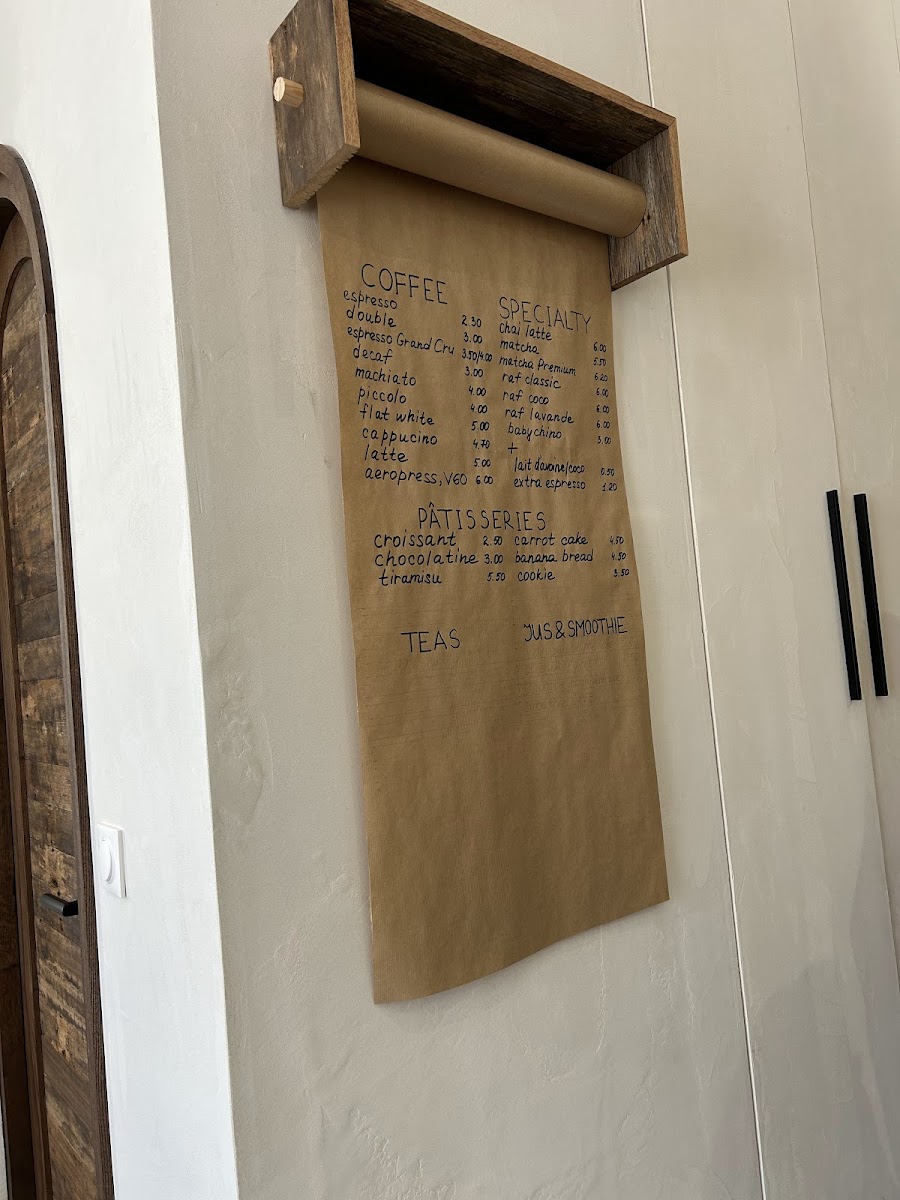 COFFEE
espresso 2.30
double 3.00
espresso Grand Cru 3.50/4.00
decaf 3.00
machiato 4.00
piccolo 4.00
flat white 5.00
cappucino 4.70
latte 5.00
aeropress, V60 6.00
SPECIALTY
chai latte 6.00
matcha 5.50
matcha Premium 6.20
raf classic 6.00
raf coco 6.00
raf lavande 6.00
babychino 3.00
+
lait d'avoine/coco 0.50
extra espresso 1.20
PÂTISSERIES
croissant 2.50
chocolatine 3.00
tiramisu 5.50
carrot cake 4.50
banana bread 4.50
cookie 3.50
TEAS
JUS & SMOOTHIE